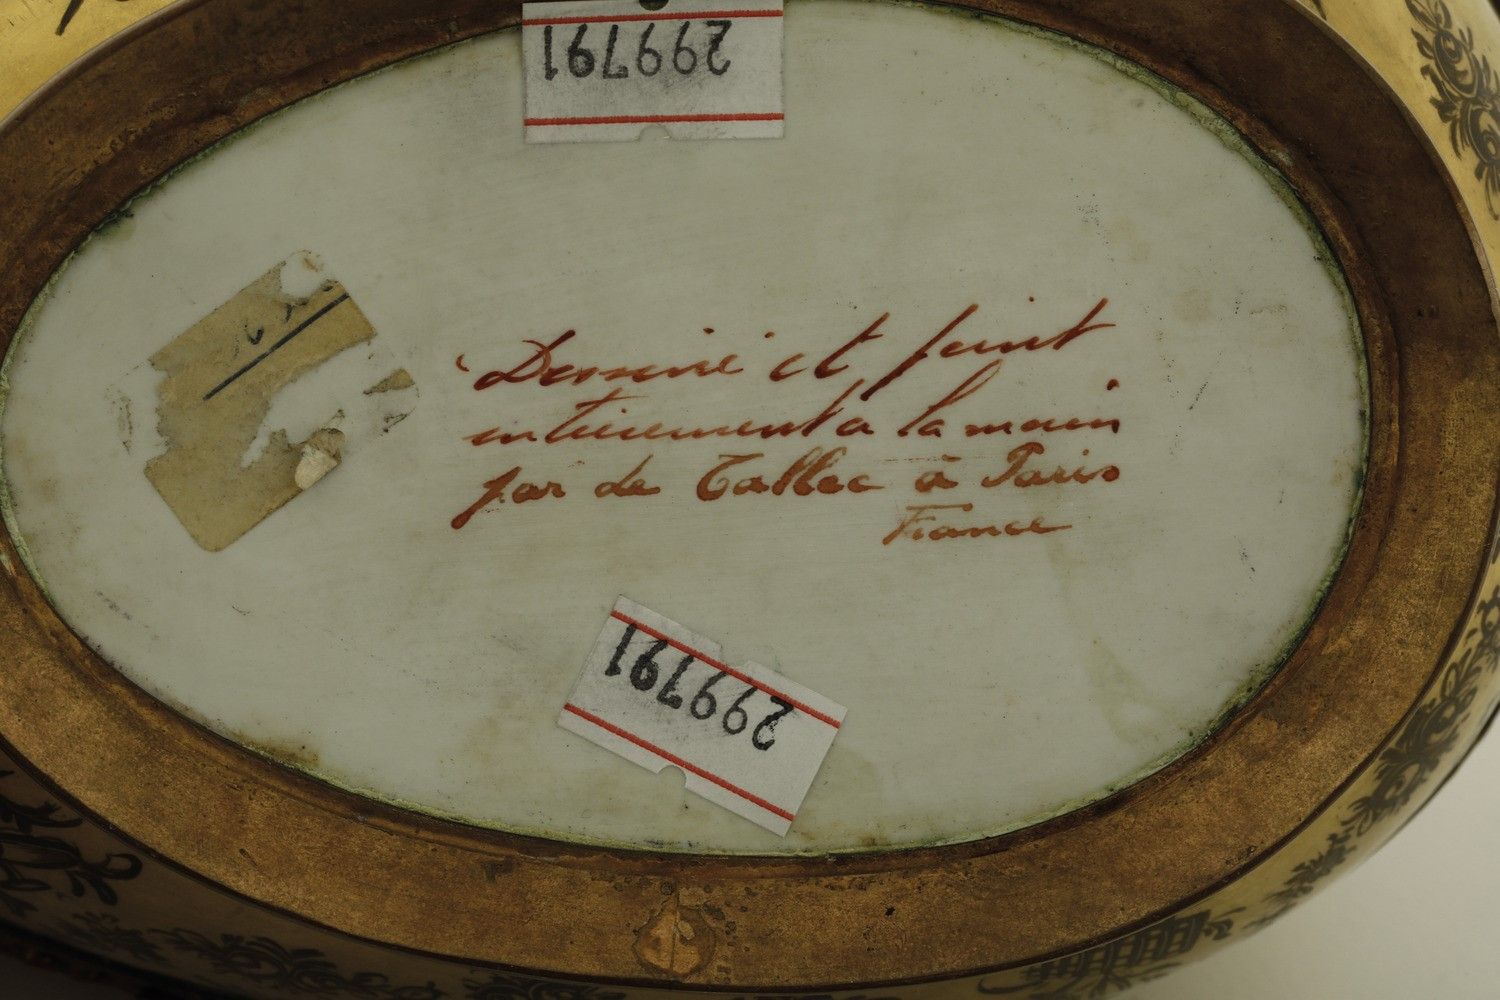 299791
Dessiné et peint
entièrement à la main
par Le Tallec à Paris
France
299791